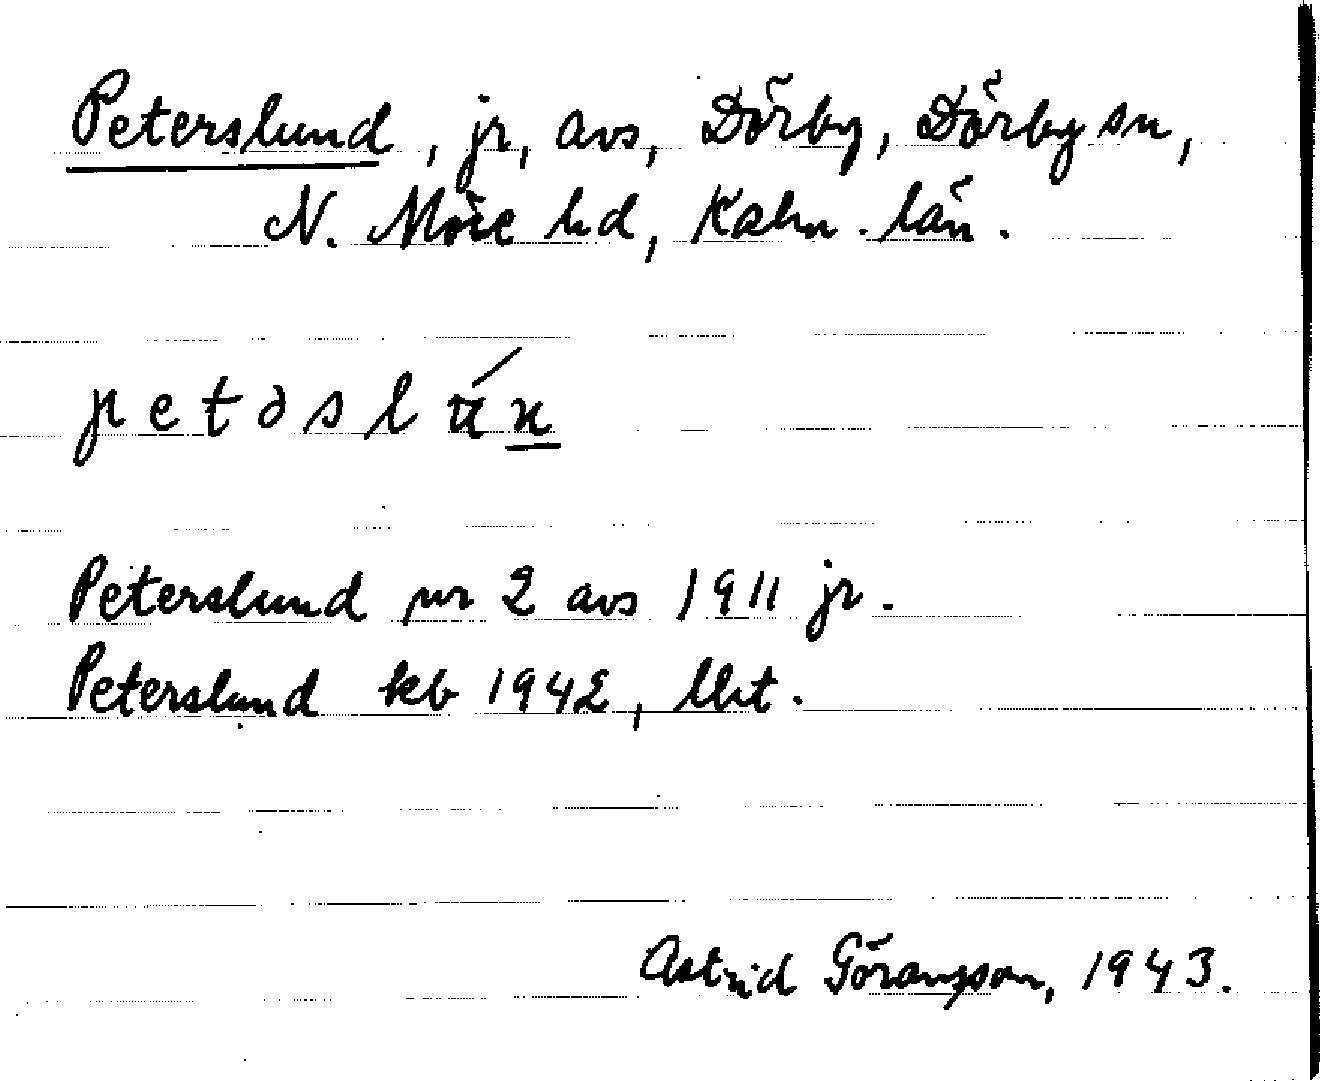 Peterslund, jr, avs, Dörby, Dörby sn,
N. Möre hd, Kalm. län.
petəslún
Peterslund nr 2 avs 1911 jr.
Peterslund kb 1942, Uht.
Astrid Göransson, 1943.